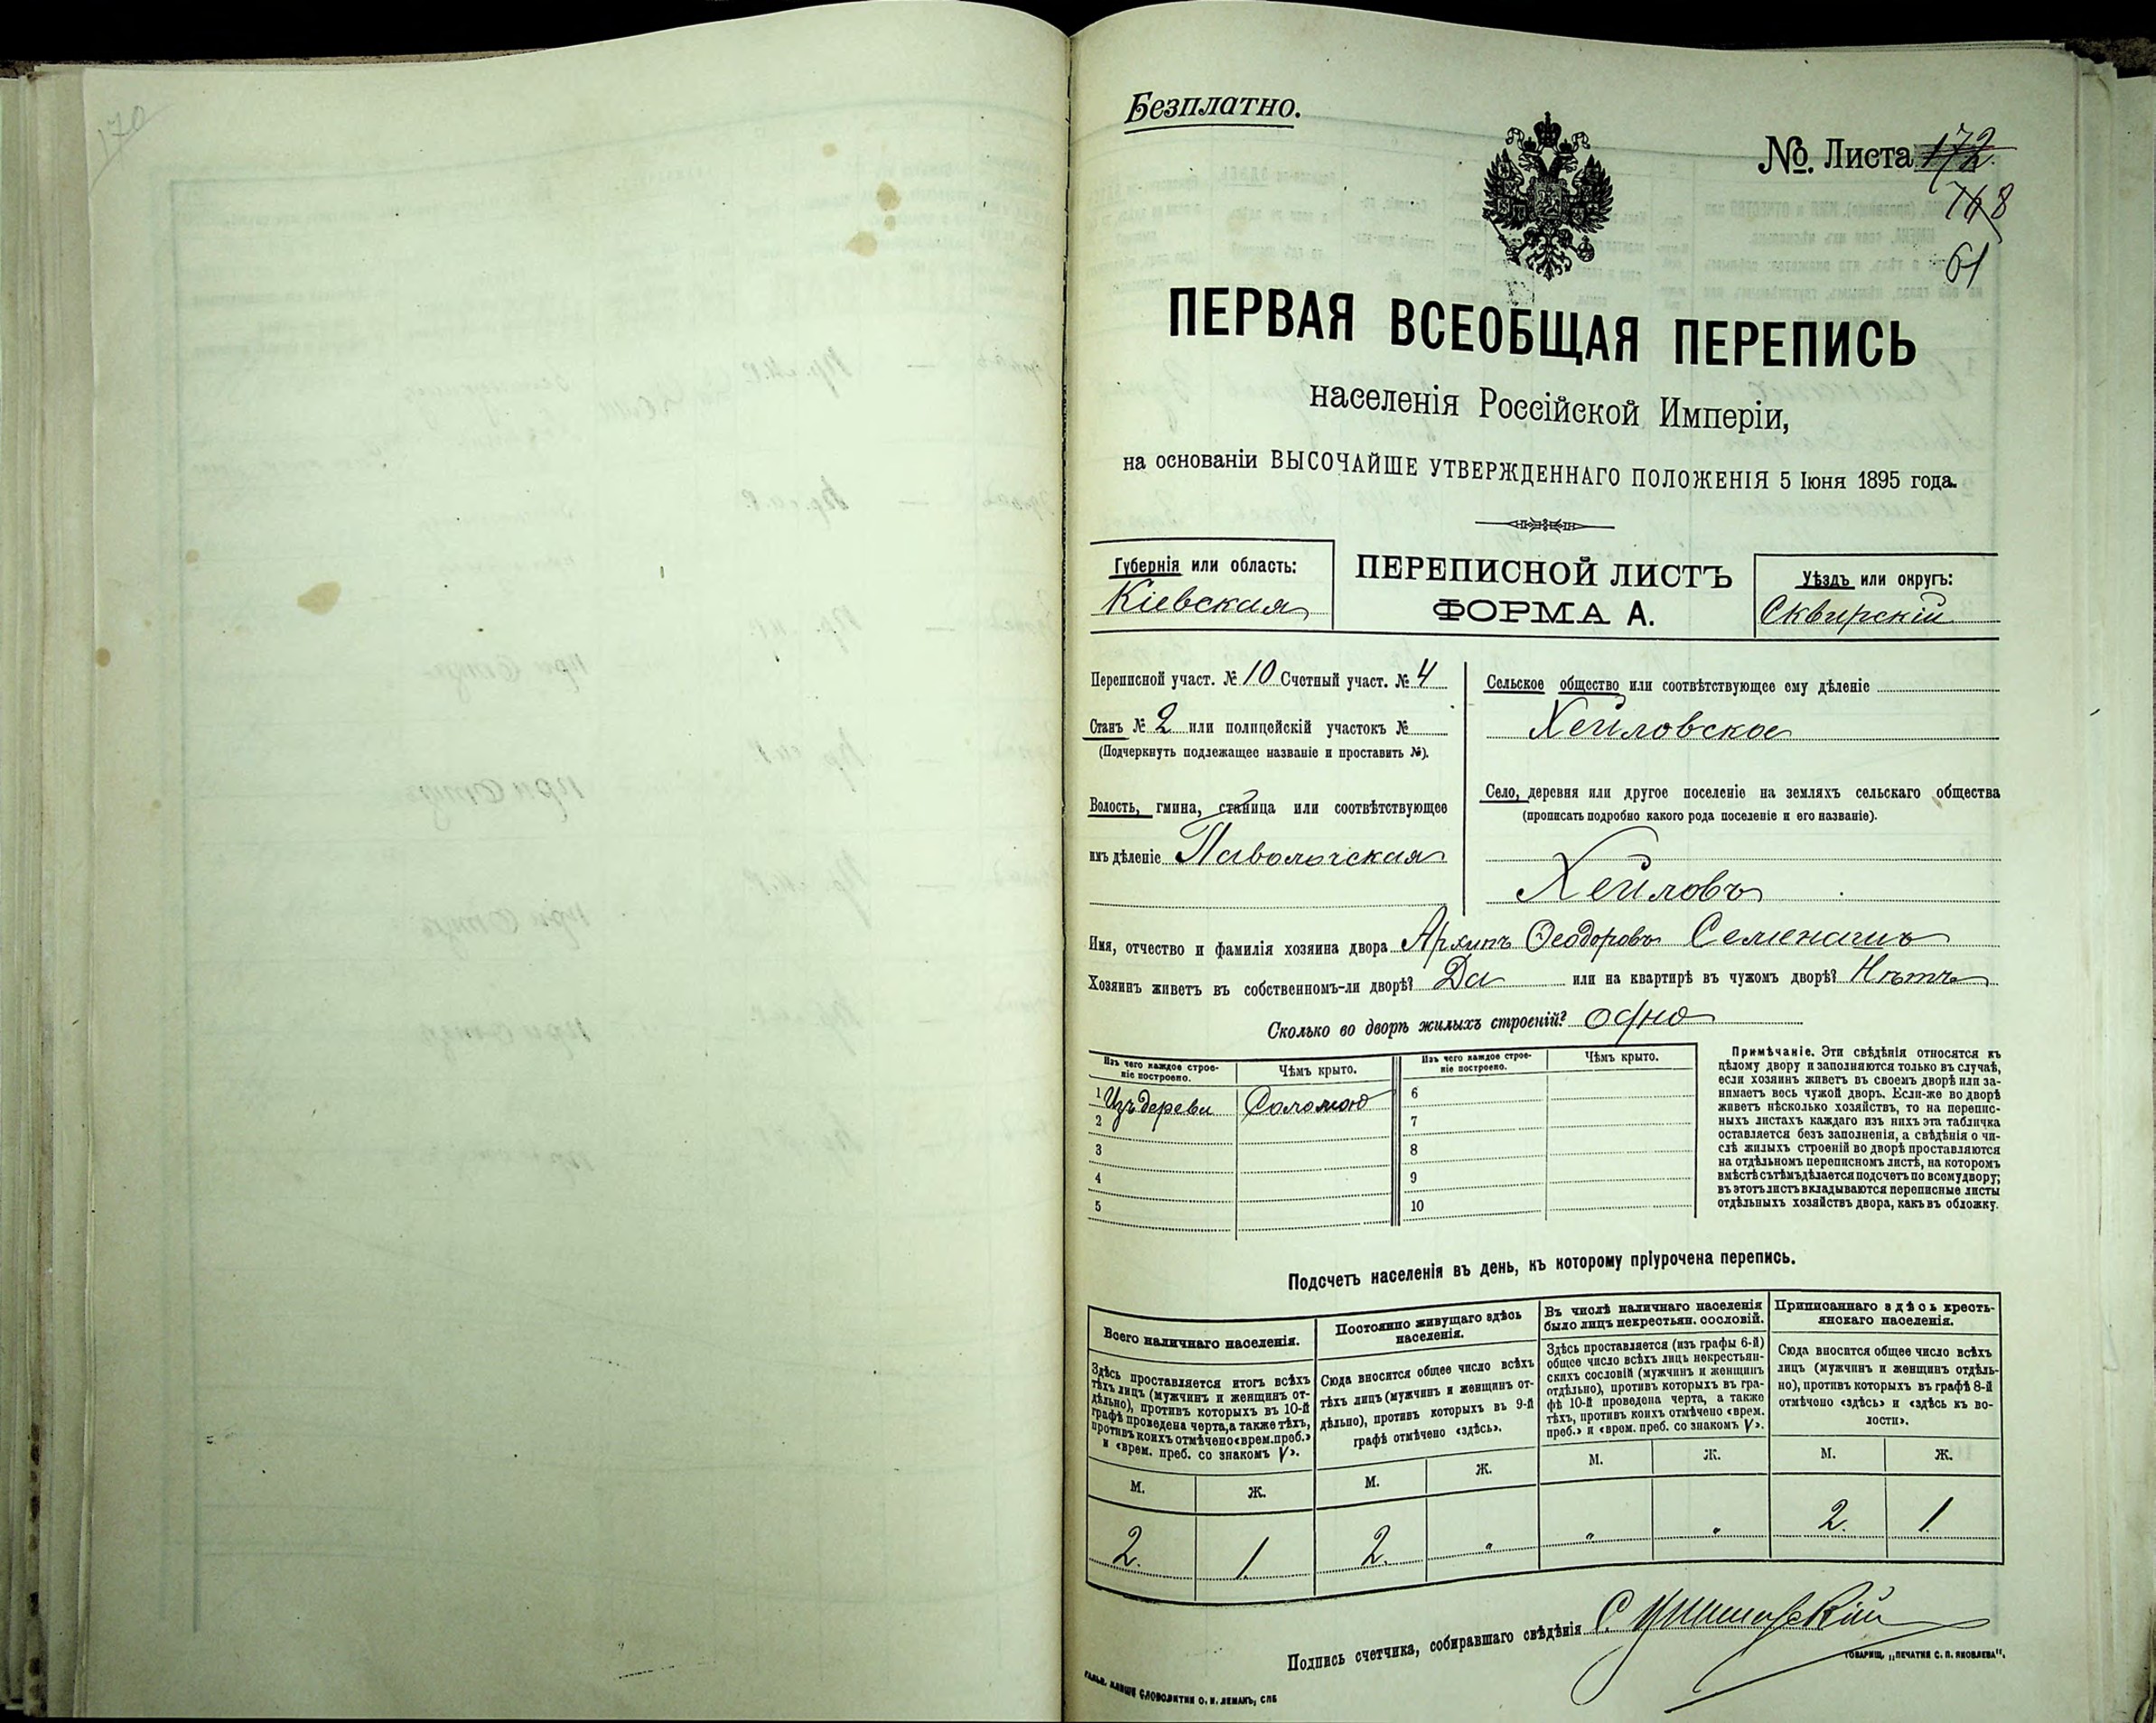 170
Безплатно.
№. Листа 172.
768
61
ПЕРВАЯ ВСЕОБЩАЯ ПЕРЕПИСЬ
населенія Россійской Имперіи,
на основаніи ВЫСОЧАЙШЕ УТВЕРЖДЕННАГО ПОЛОЖЕНІЯ 5 Іюня 1895 года.
Губернія или область:
Кіевская
ПЕРЕПИСНОЙ ЛИСТЪ
ФОРМА А.
Уѣздъ или округъ:
Сквирскій
Переписной участ. № 10 Счетный участ. № 4
Станъ № 2 или полицейскій участокъ №
(Подчеркнуть подлежащее названіе и проставить №).
Волость, гмина, станица или соотвѣтствующее
имъ дѣленіе Паволочская
Сельское общество или соотвѣтствующее ему дѣленіе
Хейловское
Село, деревня или другое поселеніе на земляхъ сельскаго общества
(прописать подробно какого рода поселеніе и его названіе).
Хейловъ
Имя, отчество и фамилія хозяина двора Архипъ Ѳеодоровъ Семенашъ
Хозяинъ живетъ въ собственномъ-ли дворѣ? Да или на квартирѣ въ чужомъ дворѣ? Нѣтъ
Сколько во дворѣ жилыхъ строеній? одно
Изъ чего каждое строе-
ніе построено.
Чѣмъ крыто.
Изъ чего каждое строе-
ніе построено.
Чѣмъ крыто.
1 Изъ дерева Соломою 6
2 7
3 8
4 9
5 10
Примѣчаніе. Эти свѣдѣнія относятся къ
цѣлому двору и заполняются только въ случаѣ,
если хозяинъ живетъ въ своемъ дворѣ или за-
нимаетъ весь чужой дворъ. Если-же во дворѣ
живетъ нѣсколько хозяйствъ, то на перепис-
ныхъ листахъ каждаго изъ нихъ эта табличка
оставляется безъ заполненія, а свѣдѣнія о чи-
слѣ жилыхъ строеній во дворѣ проставляются
на отдѣльномъ переписномъ листѣ, на которомъ
вмѣстѣ съ тѣмъ дѣлается подсчетъ по всему двору;
въ этотъ листъ вкладываются переписные листы
отдѣльныхъ хозяйствъ двора, какъ въ обложку.
Подсчетъ населенія въ день, къ которому пріурочена перепись.
Всего наличнаго населенія.
Здѣсь проставляется итогъ всѣхъ
тѣхъ лицъ (мужчинъ и женщинъ от-
дѣльно), противъ которыхъ въ 10-й
графѣ проведена черта, а также тѣхъ,
противъ коихъ отмѣчено «врем. преб.»
и «врем. преб. со знакомъ V».
М. Ж.
2. 1.
Постоянно живущаго здѣсь
населенія.
Сюда вносится общее число всѣхъ
тѣхъ лицъ (мужчинъ и женщинъ от-
дѣльно), противъ которыхъ въ 9-й
графѣ отмѣчено «здѣсь».
М. Ж.
2. "
Въ числѣ наличнаго населенія
было лицъ некрестьян. сословій.
Здѣсь проставляется (изъ графы 6-й)
общее число всѣхъ лицъ некрестьян-
скихъ сословій (мужчинъ и женщинъ
отдѣльно), противъ которыхъ въ гра-
фѣ 10-й проведена черта, а также
тѣхъ, противъ коихъ отмѣчено «врем.
преб.» и «врем. преб. со знакомъ V».
М. Ж.
" "
Приписаннаго здѣсь кресть-
янскаго населенія.
Сюда вносится общее число всѣхъ
лицъ (мужчинъ и женщинъ отдѣль-
но), противъ которыхъ въ графѣ 8-й
отмѣчено «здѣсь» и «здѣсь къ во-
лости».
М. Ж.
2. 1.
Подпись счетчика, собиравшаго свѣдѣнія С.
ГАЛЬВ. КЛИШЕ СЛОВОЛИТНИ О. И. ЛЕМАНЪ, СПБ
ТОВАРИЩ. „ПЕЧАТНЯ С. П. ЯКОВЛЕВА".